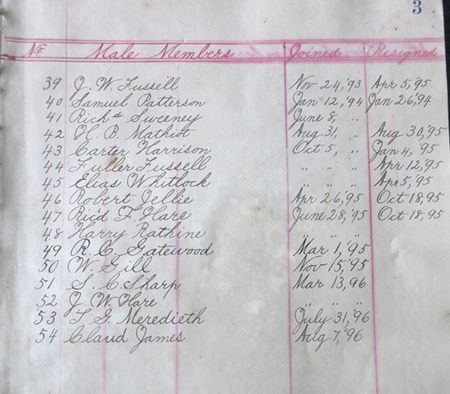 3
No. Male Members Joined Resigned
39 J. W. Fussell Nov 24,'93 Apr 5,'95
40 Samuel Patterson Jan 12,'94 Jan 26,'94
41 Richd Sweney June 8, ..
42 H. B. Mathiot Aug 31, " Aug 30,'95
43 Carter Harrison Oct 5, .. Jan 4, '95
44 Fuller Fussell " " " Apr 12,'95
45 Elias Whitlock " " " Apr 5,'95
46 Robert Jellie Apr 26,'95 Oct 18,'95
47 Ricd F Hare June 28,'95 Oct 18,'95
48 Harry Rathine " " "
49 R. C. Gatewood Mar 1, '95
50 W. Gill Nov 15,'95
51 S. C Sharp Mar 13, '96
52 J. W. Hare " " "
53 T. G. Meredieth July 31,'96
54 Claud James Aug 7, '96